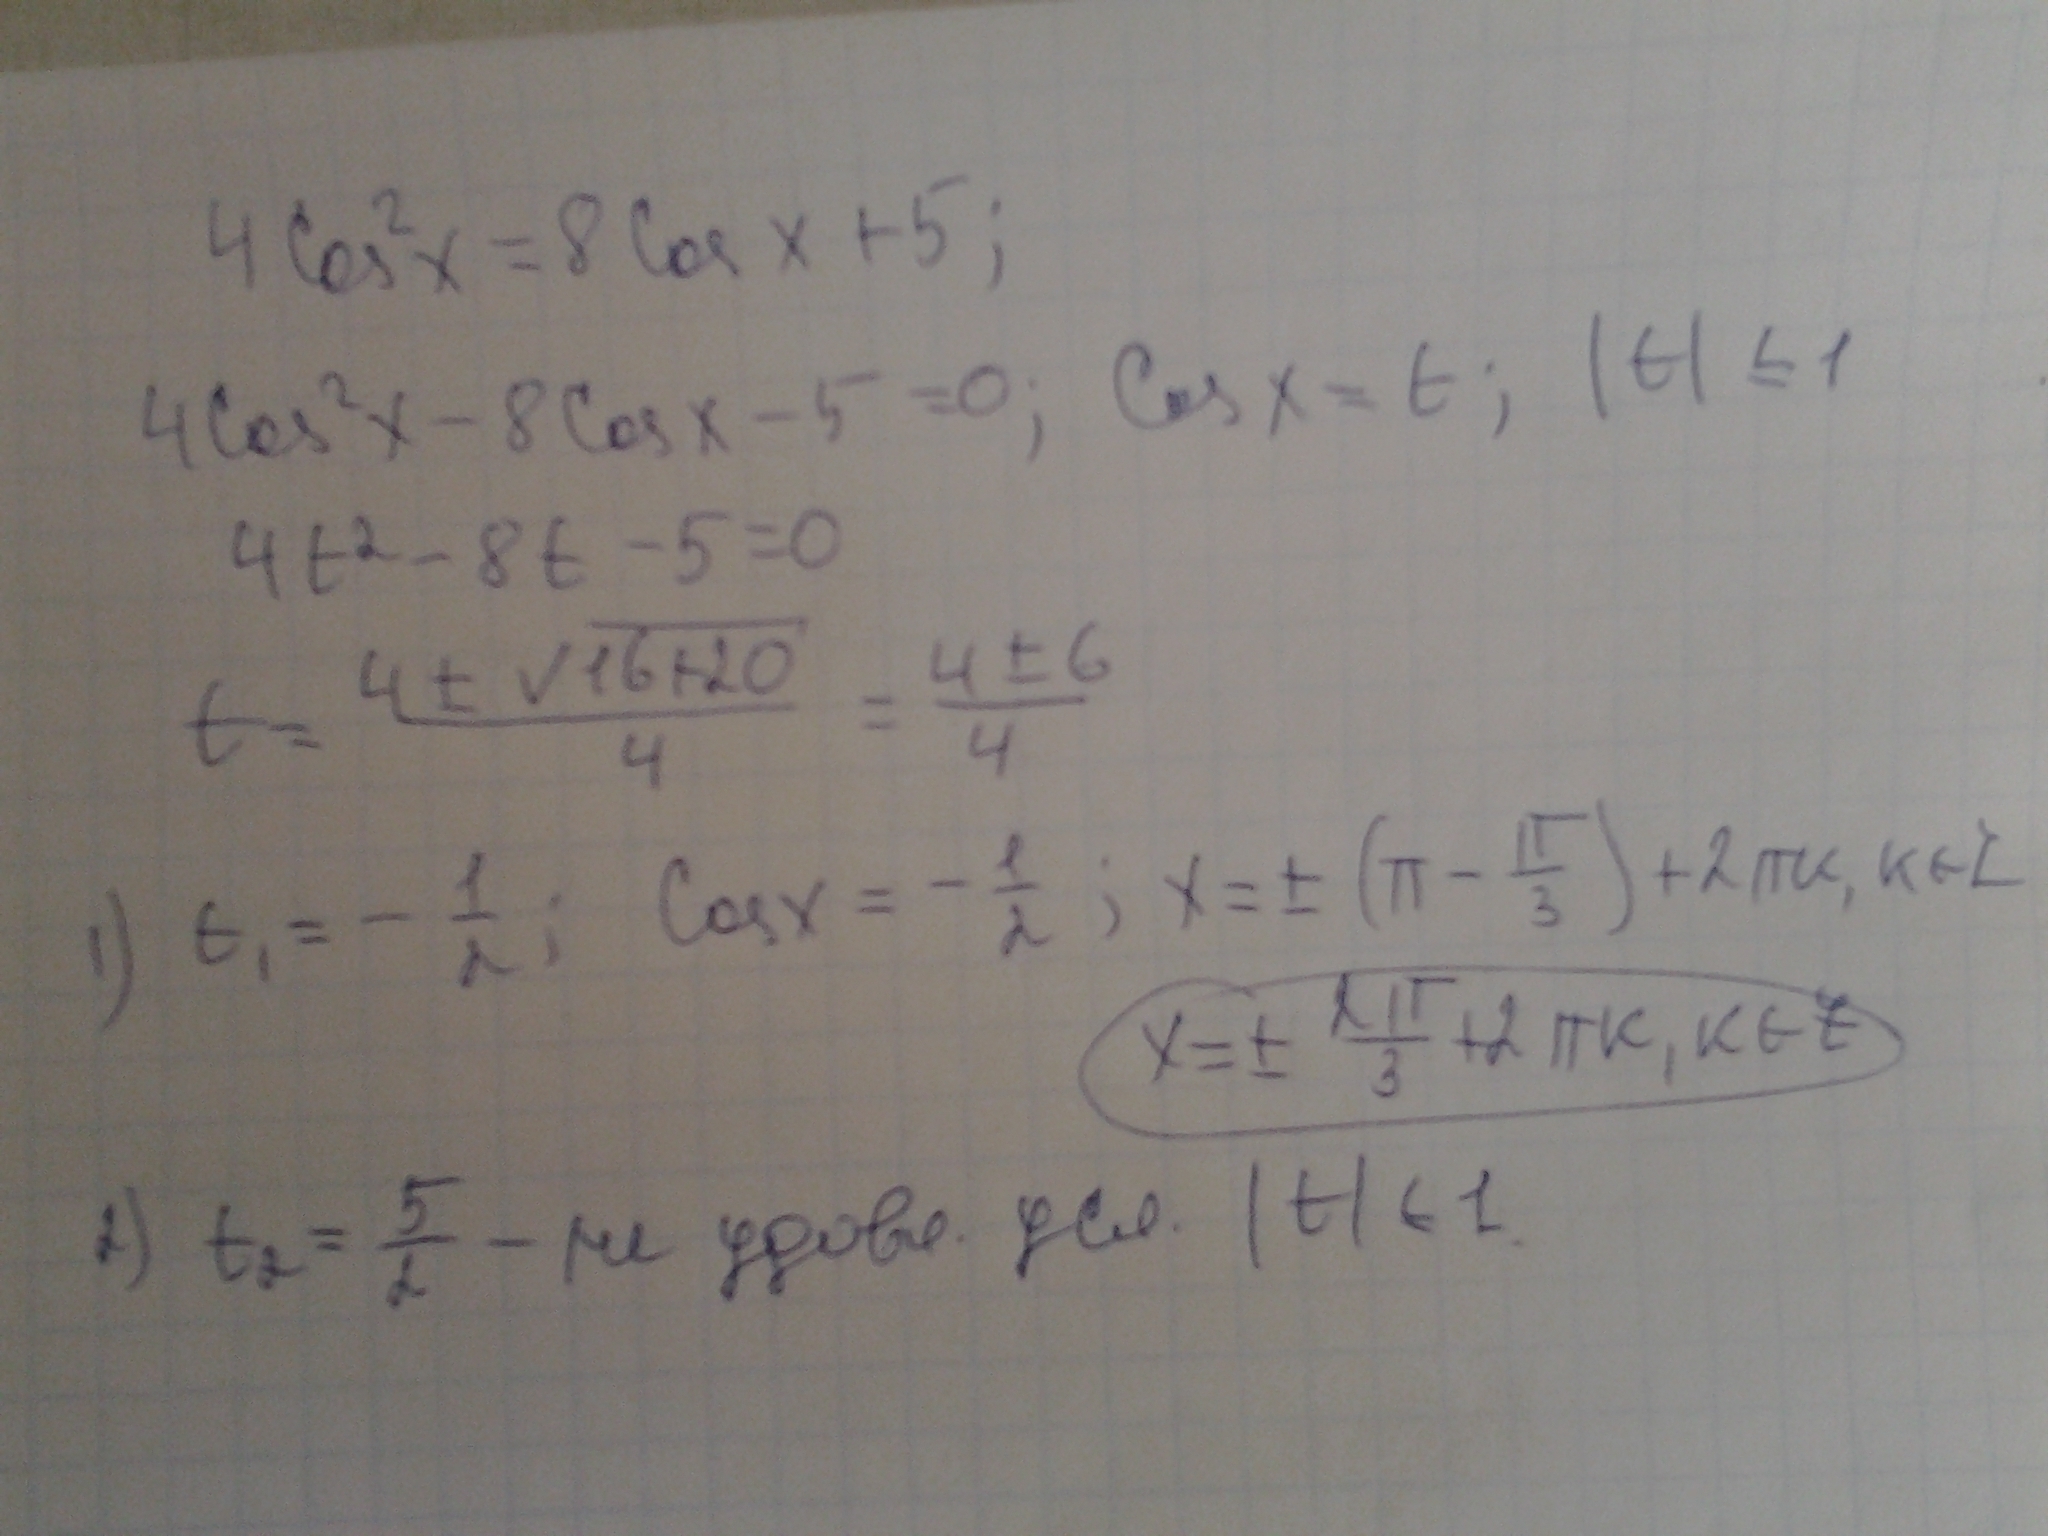 4 Cos²x = 8 Cos x + 5;
4Cos²x - 8Cosx - 5 = 0; Cos x = t; |t| ≤ 1
4t² - 8t - 5 = 0
t = (4 ± √(16+20))/4 = (4 ± 6)/4
1) t₁ = - 1/2; Cosx = - 1/2; x = ± (π - π/3) + 2πк, к ∈ Z
x = ± 2π/3 + 2πк, к ∈ Z
2) t₂ = 5/2 - не удовл. усл. |t| ≤ 1.